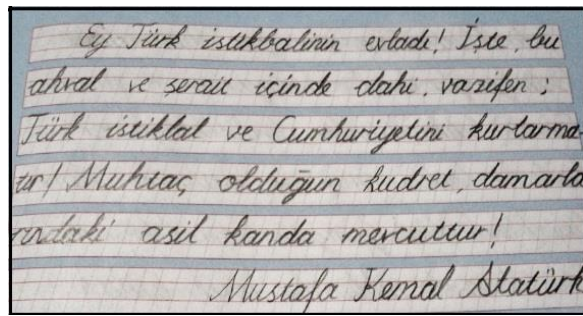 Ey Türk istikbalinin evladı! İşte, bu
ahval ve şerait içinde dahi, vazifen;
Türk istiklal ve Cumhuriyetini kurtarma
tır! Muhtaç olduğun kudret, damarla
rındaki asil kanda mevcuttur!
Mustafa Kemal Atatürk